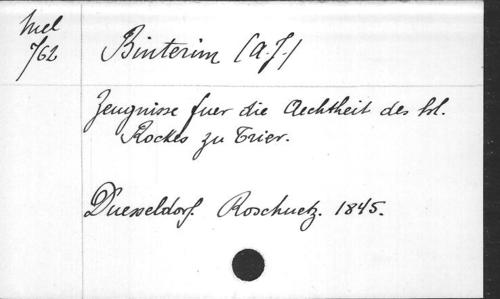 Mel
/62
Binterim (A.J.)
Zeugnisse fuer die Aechtheit des hl.
Rockes zu Trier.
Duesseldorf. Roschuetz. 1845.